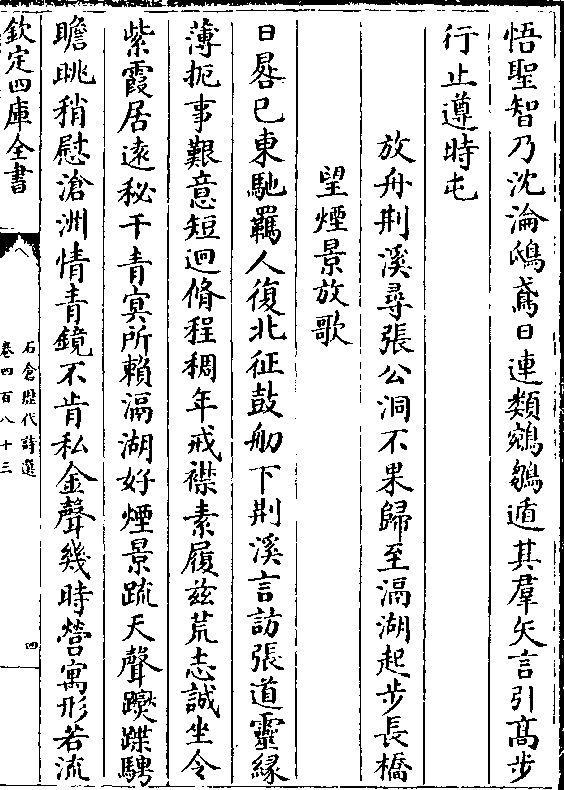 悟聖智乃沈淪鴟鳶日連類鵷鶵遁其羣矢言引髙步
行止遵時屯
放舟荆溪尋張公洞不果歸至滆湖起步長橋
望煙景放歌
日晷已東馳羈人復北征鼓舠下荆溪言訪張道靈緣
薄扼事艱意短迴脩程稠年戒襟素履兹荒志誠坐令
紫霞居逺秘千青冥所賴滆湖好煙景䟽天聲躞蹀騁
瞻眺稍慰滄洲情青鏡不肯私金聲幾時營寓形若流
欽定四庫全書
石倉歴代詩選
卷四百八十三
四